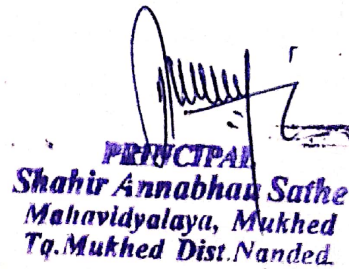 PRINCIPAL
Shahir Annabhau Sathe
Mahavidyalaya, Mukhed
Tq.Mukhed Dist.Nanded